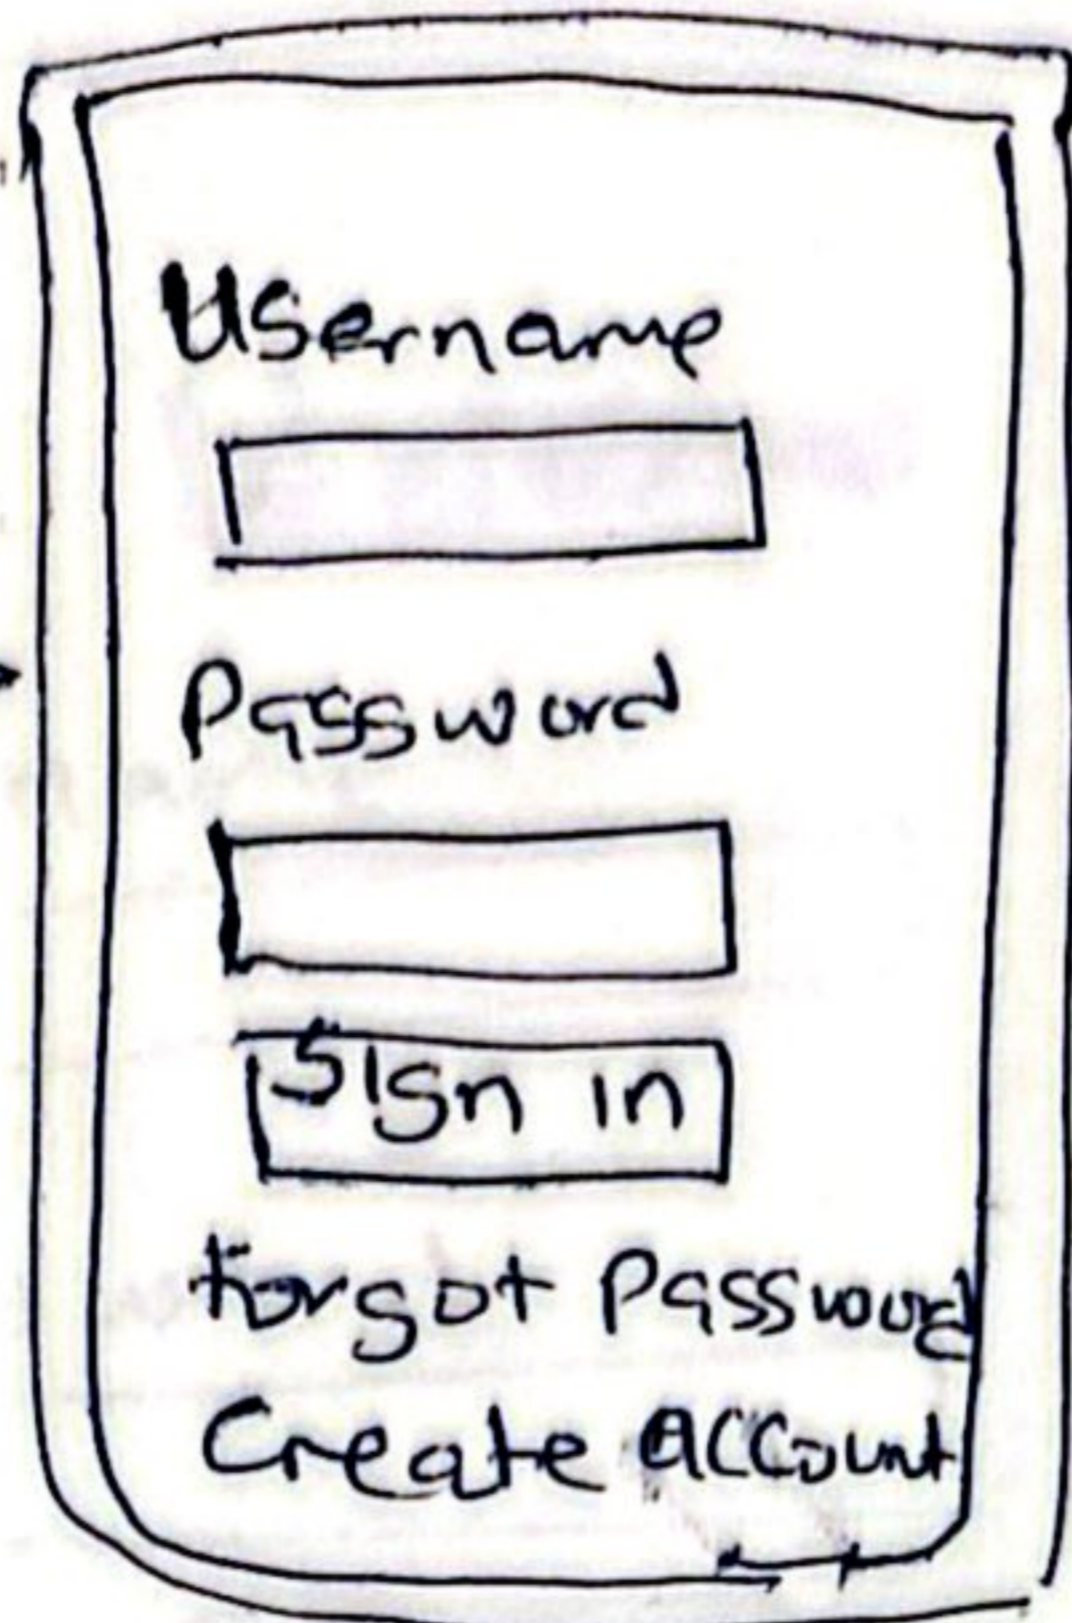 Username
Password
Sign in
Forgot Password
Create Account